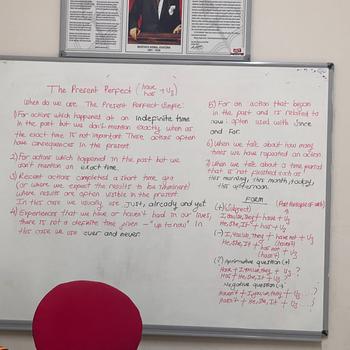 MUSTAFA KEMAL ATATÜRK
1881 - 1938
The Present Perfect (have / has + V3)
When do we use The Present Perfect Simple:
1) For actions which happened at an indefinite time
in the past but we don't mention exactly when as
the exact time is not important. These actions often
have consequences in the present.
2) For actions which happened in the past but we
don't mention an exact time.
3) Recent actions completed a short time ago
(or where we expect the results to be imminent)
where results are often visible in the present.
In this case we usually use just, already and yet
4) Experiences that we have or haven't had in our lives,
there is not a definite time given - "up to now" In
this case we use ever and never.
5) For an action that began
in the past and is related to
now: often used with Since
and For.
6) When we talk about how many
times we have repeated an action
7) When we talk about a time period
that is not finished such as
this morning, this month, today,
this afternoon.
FORM
(+) (Subject)
I, you, we, they + have + V3
He, She, It + has + V3
(-) I, you, we, they + have not + V3
(haven't)
He, She, It + has not + V3
(hasn't)
(?) Affirmative question (+)
Have + I, you, we, they + V3 ?
Has + He, She, It + V3 ?
Negative question (-)
Haven't + I, you, we, they + V3 ...?
Hasn't + He, She, It + V3 ...?